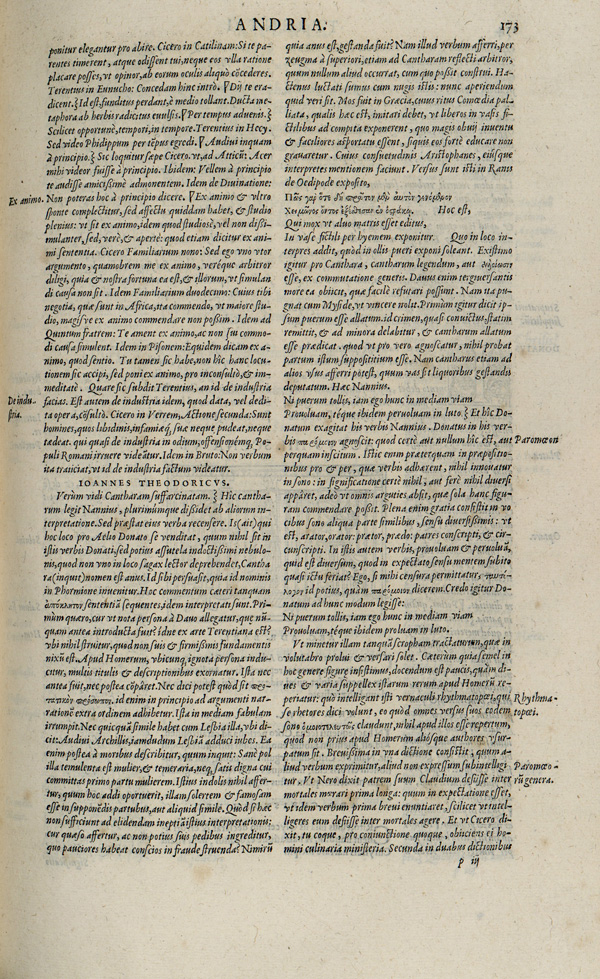 ANDRIA.
173
ponitur elegantur pro abire. Cicero in Catilinam: Si te pa-
rentes timerent, atque odissent tui, neque eos vlla ratione
placare posses, vt opinor, ab eorum oculis aliquò cōcederes.
Terentius in Eunucho: Concedam hinc intrò. ∇ Dij te era-
dicent. ⸹ Id est, funditus perdant, è medio tollant. Ducta me-
taphora ab herbis radicitus euulsis. ∇ Per tempus aduenis. ⸹
Scilicet opportunè, tempori, in tempore. Terentius in Hecy.
Sed video Phidippum per tēpus egredi. ∇ Audiui inquam
à principio. ⸹ Sic loquitur sæpe Cicero. vt, ad Atticū: Acer
mihi videor fuisse à principio. Ibidem: Vellem à principio
te audisse amicissimè admonentem. Idem de Diuinatione:
Ex animo.
Non poteras hoc à principio dicere. ∇ Ex animo & vltro
sponte complectitur, sed affectu quiddam habet, & studio
plenius: vt sit ex animo, idem quod studiosè, vel non dissi-
mulanter, sed, verè, & apertè: quod etiam dicitur ex ani-
mi sententia. Cicero Familiarium nono: Sed ego vno vtor
argumento, quamobrem me ex animo, veréque arbitror
diligi, quia & nostra fortuna ea est, & illorum, vt simulan
di causa non sit. Idem Familiarium duodecimo: Cuius tibi
negotia, quæ sunt in Africa, ita commendo, vt maiore stu-
dio, magisve ex animo commendare non possim. Idem ad
Quintum fratrem: Te ament ex animo, ac non suæ commo-
di causa simulent. Idem in Pisonem: Equidem dicam ex a-
nimo, quod sentio. Tu tamen sic habe, non hîc hanc locu-
tionem sic accipi, sed poni ex animo, pro inconsultò, & im-
meditatè. Quare sic subdit Terentius, an id de industria
De indu-
stria.
facias. Est autem de industria idem, quod data, vel dedi-
ta opera, cōsultò. Cicero in Verrem, Actione secunda: Sunt
homines, quos libidinis, infamiæq́; suæ neque pudeat, neque
tædeat. qui quasi de industria in odium, offensionémq́; Po-
puli Romani irruere videātur. Idem in Bruto: Non verbum
ita traiciat, vt id de industria factum videatur.
IOANNES THEODORICVS.
Verùm vidi Cantharam suffarcinatam. ⸹ Hîc cantha-
rum legit Nannius, plurimúmque dissidet ab aliorum in-
terpretatione. Sed præstat eius verba recensere. Is (ait) qui
hoc loco pro Aelio Donato se venditat, quum nihil sit in
istis verbis Donati, sed potius assutela indoctissimi nebulo-
nis, quod non vno in loco sagax lector deprehendet, Cantha
ra (inquit) nomen est anus. Id sibi persuasit, quia id nominis
in Phormione inuenitur. Hoc commentum cæteri tanquam
sententiā sequentes, idem interpretati sunt. Pri-
mùm quæro, cur vt nota persona à Dauo allegatur, quæ nū-
quam antea introducta fuit? idne ex arte Terentiana est?
vbi nihil struitur, quod non suis & firmissimis fundamentis
nixū est. Apud Homerum, vbicunq; ignota persona indu-
citur, multis titulis & descriptionibus exornatur. Ista nec
antea fuit, nec postea cōparet. Nec dici potest quòd sit
id enim in principio ad argumenti nar-
rationē extra ordinem adhibetur. Ista in mediam fabulam
irrumpit. Nec quicquā simile habet cum Lesbia illa, vbi di-
cit: Audiui Archillis, iamdudum: Lesbiā adduci iubes. Ea
enim postea à moribus describitur, quum inquit: Sanè pol
illa temulenta est mulier, & temeraria, neq; satis digna cui
committas primo partu mulierem. Istius indolis nihil affer-
tur, quum hoc addi oportuerit, illam solertem & famosam
esse in supponēdis partubus, aut aliquid simile. Quòd si hæc
non sufficiunt ad elidendam ineptiā istius interpretationis:
cur quæso affertur, ac non potius suis pedibus ingreditur,
quo pauciores habeat conscios in fraude struenda? Nimirū
quia anus est, gestanda fuit? Nam illud verbum afferri, per
zeugma à superiori, etiam ad Cantharam reflecti arbitror,
quum nullum aliud occurrat, cum quo possit construi. Ha-
ctenus luctati sumus cum nugis istis: nunc aperiendum
quid veri sit. Mos fuit in Græcia, cuius ritus Comœdia pal-
liata, qualis hæc est, imitari debet, vt liberos in vasis fi-
ctilibus ad compita exponerent, quo magis obuij inuentu
& faciliores asportatu essent, siquis eos fortè educare non
grauaretur. Cuius consuetudinis Aristophanes, eiúsque
interpretes mentionem faciunt. Versus sunt isti in Ranis
de Oedipode exposito,
Πῶς γὰρ ὅτε δὴ πρῶτον μὲν αὐτὸν γενόμενον
Χειμῶνος ὄντος ἐξέθεσαν ἐν ὀστράκῳ. Hoc est,
Qui mox vt aluo matris esset editus,
In vase fictili per hyemem exponitur. Quo in loco in-
terpres addit, quòd in ollis pueri exponi soleant. Existimo
igitur pro Canthara, cantharum legendum, aut
esse, ex commutatione generis. Dauus enim tergiuersantis
more ea obiicit, quæ facilè refutari possunt. Nam ita pu-
gnat cum Myside, vt vincere nolit. Primùm igitur dicit ip-
sum puerum esse allatum. id crimen, quasi conuictus, statim
remittit, & ad minora delabitur, & cantharum allatum
esse prædicat. quod vt pro vero agnoscatur, nihil probat
partum istum supposititium esse. Nam cantharus etiam ad
alios vsus afferri potest, quum vas sit liquoribus gestandis
deputatum. Hæc Nannius.
Ni puerum tollis, iam ego hunc in mediam viam
Prouoluam, téque ibidem peruoluam in luto. ⸹ Et hîc Do-
natum exagitat his verbis Nannius. Donatus in his ver-
bis πάρομοιον agnoscit: quod certè aut nullum hîc est, aut
Paromœon
perquam inscitum. Istic enim præterquam in præpositio-
nibus pro & per, quæ verbis adhærent, nihil innouatur
in sono: in significatione certè nihil, aut ferè nihil diuersi
apparet, adeò vt omnis arguties absit, quæ sola hanc figu-
ram commendare possit. Plena enim gratia consistit in vo
cibus sono aliqua parte similibus, sensu diuersissimis: vt
est, arator, orator: prætor, prædo: patres conscripti, & cir-
cunscripti. In istis autem verbis, prouoluam & peruoluā,
quid est diuersum, quod in expectato sensu mentem subito
quasi ictu feriat? Ego, si mihi censura permittatur,
id potiùs, quàm πάρομοιον dicerem. Credo igitur Do-
natum ad hunc modum legisse:
Ni puerum tollis, iam ego hunc in mediam viam
Prouoluam, téque ibidem proluam in luto.
Vt minetur illam tanquā scropham tractaturum, quæ in
volutabro prolui & versari solet. Cæterùm quia semel in
hoc genere figuræ insistimus, docendum est paucis, quàm di-
ues & varia suppellex istarum rerum apud Homerū re-
periatur: quò intelligant isti vernaculi rhythmatopœi, qui
Rhythma-
topœi.
se rhetores dici volunt, eo quòd omnes versus suos eodem
sono claudunt, nihil apud illos esse repertum,
quod non prius apud Homerum aliósque authores vsur-
patum sit. Breuissima in vna dictione consistit, quum a-
liud verbum exprimitur, aliud non expressum subintelligi-
Paromœo-
rū genera.
tur. Vt Nero dixit patrem suum Claudium desiisse inter
mortales morari prima longa: quum in expectatione esset,
vt idem verbum prima breui enuntiaret, scilicet vt intel-
ligeres eum desiisse inter mortales agere. Et vt Cicero di-
xit, tu coque, pro coniunctione quoque, obiiciens ei ho-
mini culinaria ministeria. Secunda in duabus dictionibus
p iij